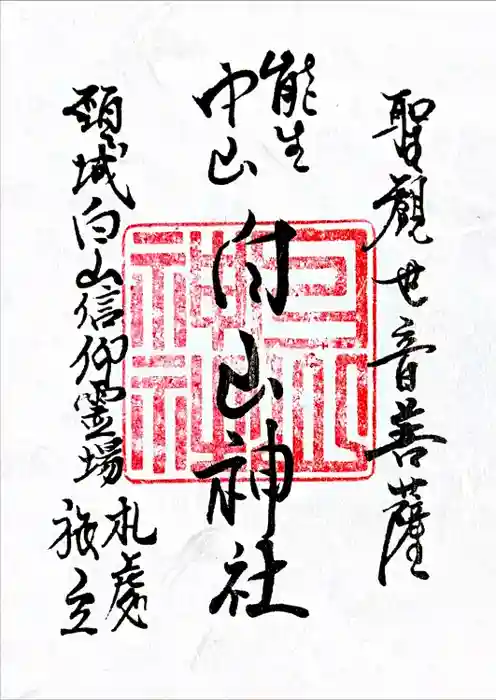 聖観世音菩薩
能生
中山
白山神社
頸城白山信仰霊場
札處
旅立
白山
神社